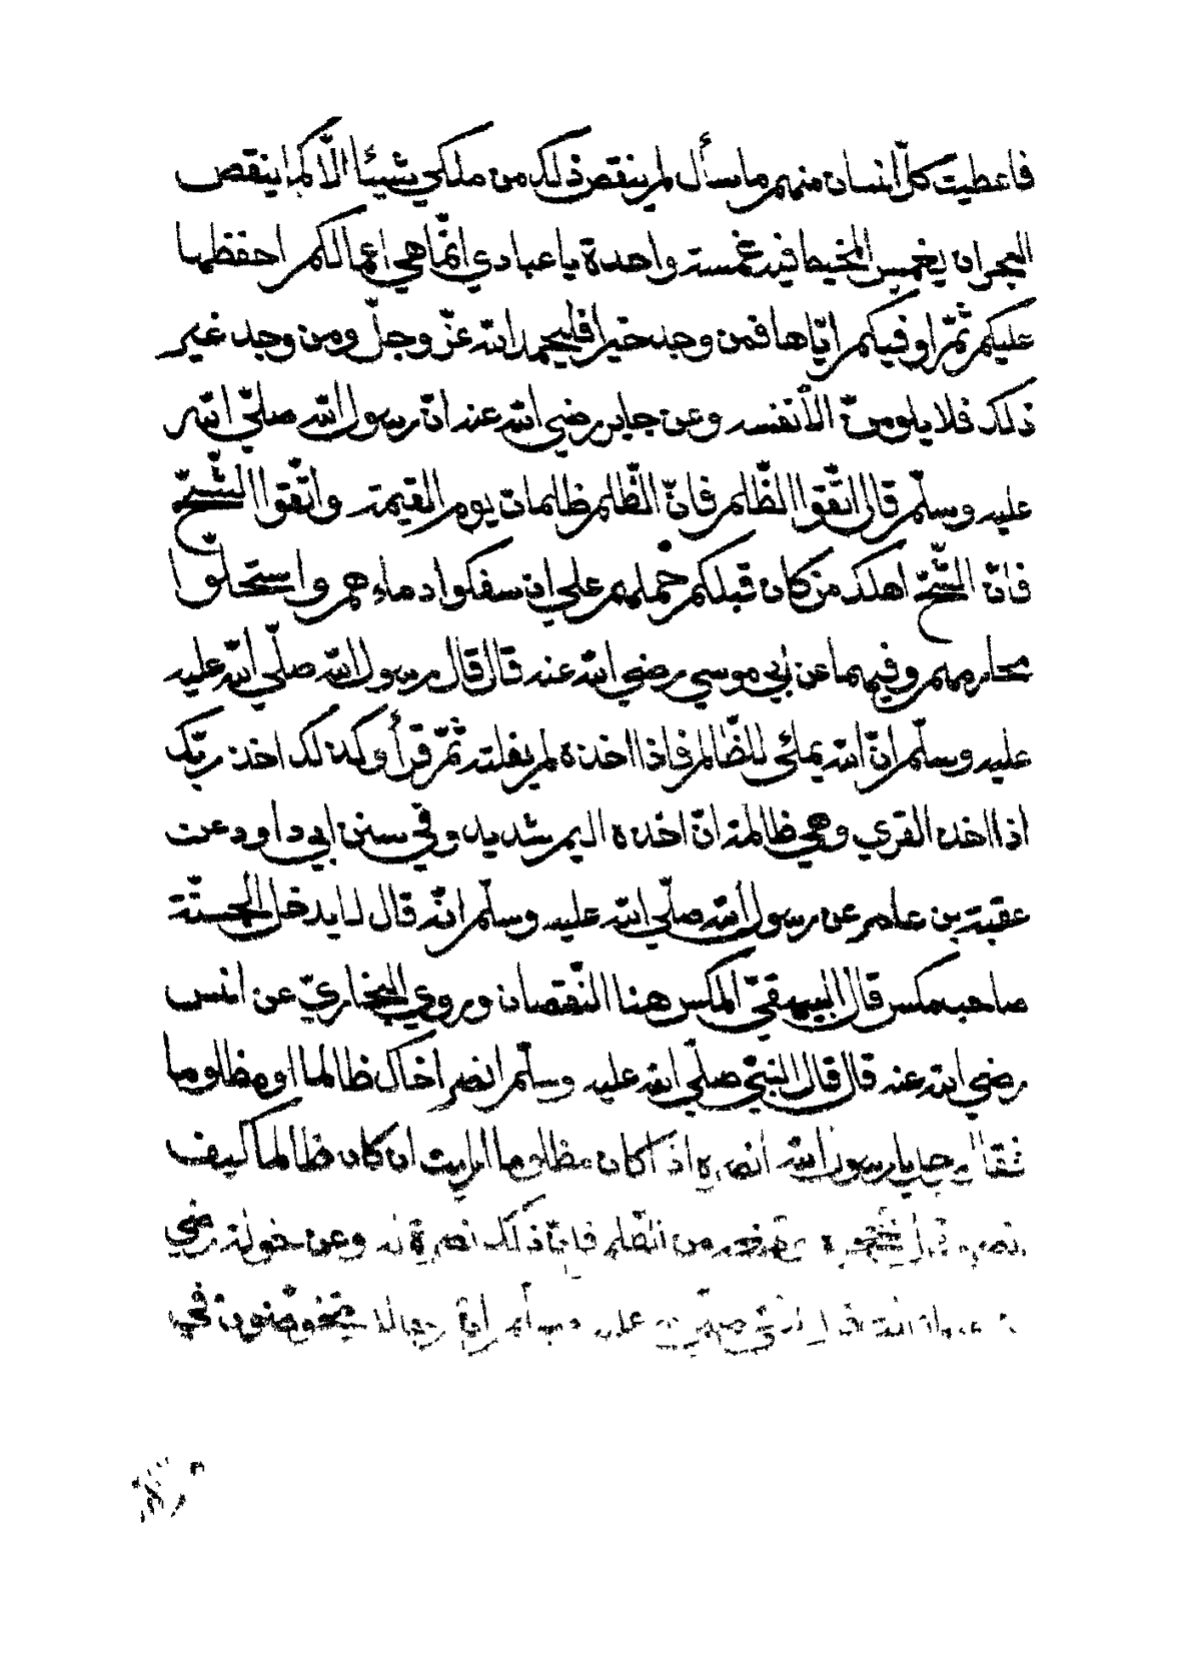 فاعطيت كلّ انسان منهم ما سأل لم ينقص ذلك من ملكي شيئا الّا كما ينقص
البحر ان يغمس المخيط فيه غمسة واحدة يا عبادي انّما هي اعمالكم احفظها
عليكم ثمّ اوفيكم ايّاها فمن وجد خيرا فليحمد الله عزّ وجلّ ومن وجد غير
ذلك فلا يلومنّ الّا نفسه وعن جابر رضي الله عنه انّ رسول الله صلّي الله
عليه وسلّم قال اتّقوا الظّلم فانّ الظّلم ظلمات يوم القيمة واتّقوا الشّحّ
فانّ الشّحّ اهلك من كان قبلكم حملهم علي ان سفكوا دماءهم واستحلّوا
محارمهم وفيهما عن ابي موسي رضي الله عنه قال قال رسول الله صلّي الله عليه
عليه وسلّم انّ الله يملئ للظّالم فاذا اخذه لم يفلته ثمّ قرأ وكذلك اخذ ربّك
اذا اخذ القري وهي ظالمة انّ اخذه اليم شديد وفي سنن ابي داود عن
عقبة بن عامر عن رسول الله صلّي الله عليه وسلّم انّه قال لا يدخل الجنّة
صاحب مكس قال البيهقيّ المكس هنا النّقصان وروي البخاريّ عن انس
رضي الله عنه قال قال النّبيّ صلّي الله عليه وسلّم انصر اخاك ظالما او مظلوما
فقال رجل يا رسول الله انصره اذا كان مظلوما ارايت ان كان ظالما كيف
انصره قال تحجزه او تمنعه من الظّلم فانّ ذلك نصرة له وعن خولة رضي
الله عنها قالت قال النّبيّ صلّي الله عليه وسلّم انّ رجالا يتخوّضون في